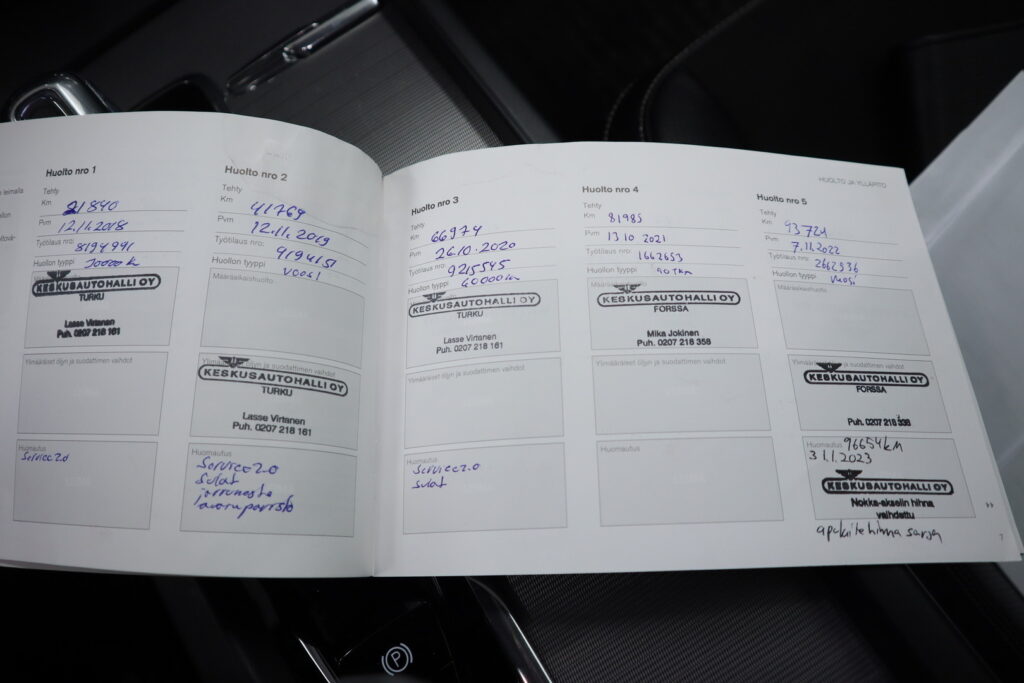 Huolto nro 1
Tehty
Km 21840
Pvm 12.11.2018
Työtilaus nro: 8194991
Huollon tyyppi
KESKUSAUTOHALLI OY
TURKU
Lasse Virtanen
Puh. 0207 218 161
Ylimääräiset öljyn ja suodattimen vaihdot
Huomautus
Service 2.0
Huolto nro 2
Tehty
Km 41769
Pvm 12.11.2019
Työtilaus nro: 9194151
Huollon tyyppi vuosi
Määräaikaishuolto
Ylimääräiset öljyn ja suodattimen vaihdot
KESKUSAUTOHALLI OY
TURKU
Lasse Virtanen
Puh. 0207 218 161
Huomautus
Service 2.0
sulat
jarruneste
HUOLTO JA YLLÄPITO
Huolto nro 3
Tehty
Km 66974
Pvm 26.10.2020
Työtilaus nro: 9215545
Huollon tyyppi 60000km
KESKUSAUTOHALLI OY
TURKU
Lasse Virtanen
Puh. 0207 218 161
Ylimääräiset öljyn ja suodattimen vaihdot
Huomautus
Service 2.0
sulat
Huolto nro 4
Tehty
Km 81985
Pvm 13 10 2021
Työtilaus nro: 1662653
Huollon tyyppi 90 tkm
KESKUSAUTOHALLI OY
FORSSA
Mika Jokinen
Puh. 0207 218 358
Ylimääräiset öljyn ja suodattimen vaihdot
Huomautus
Huolto nro 5
Tehty
Km 93724
Pvm 7.11.2022
Työtilaus nro: 2662936
Huollon tyyppi vuosi
Määräaikaishuolto
Ylimääräiset öljyn ja suodattimen vaihdot
KESKUSAUTOHALLI OY
FORSSA
Puh. 0207 218 338
Huomautus 96654km
31.1.2023
KESKUSAUTOHALLI OY
Nokka-akselin hihna
vaihdettu
apulaitehihna sarja
7
P